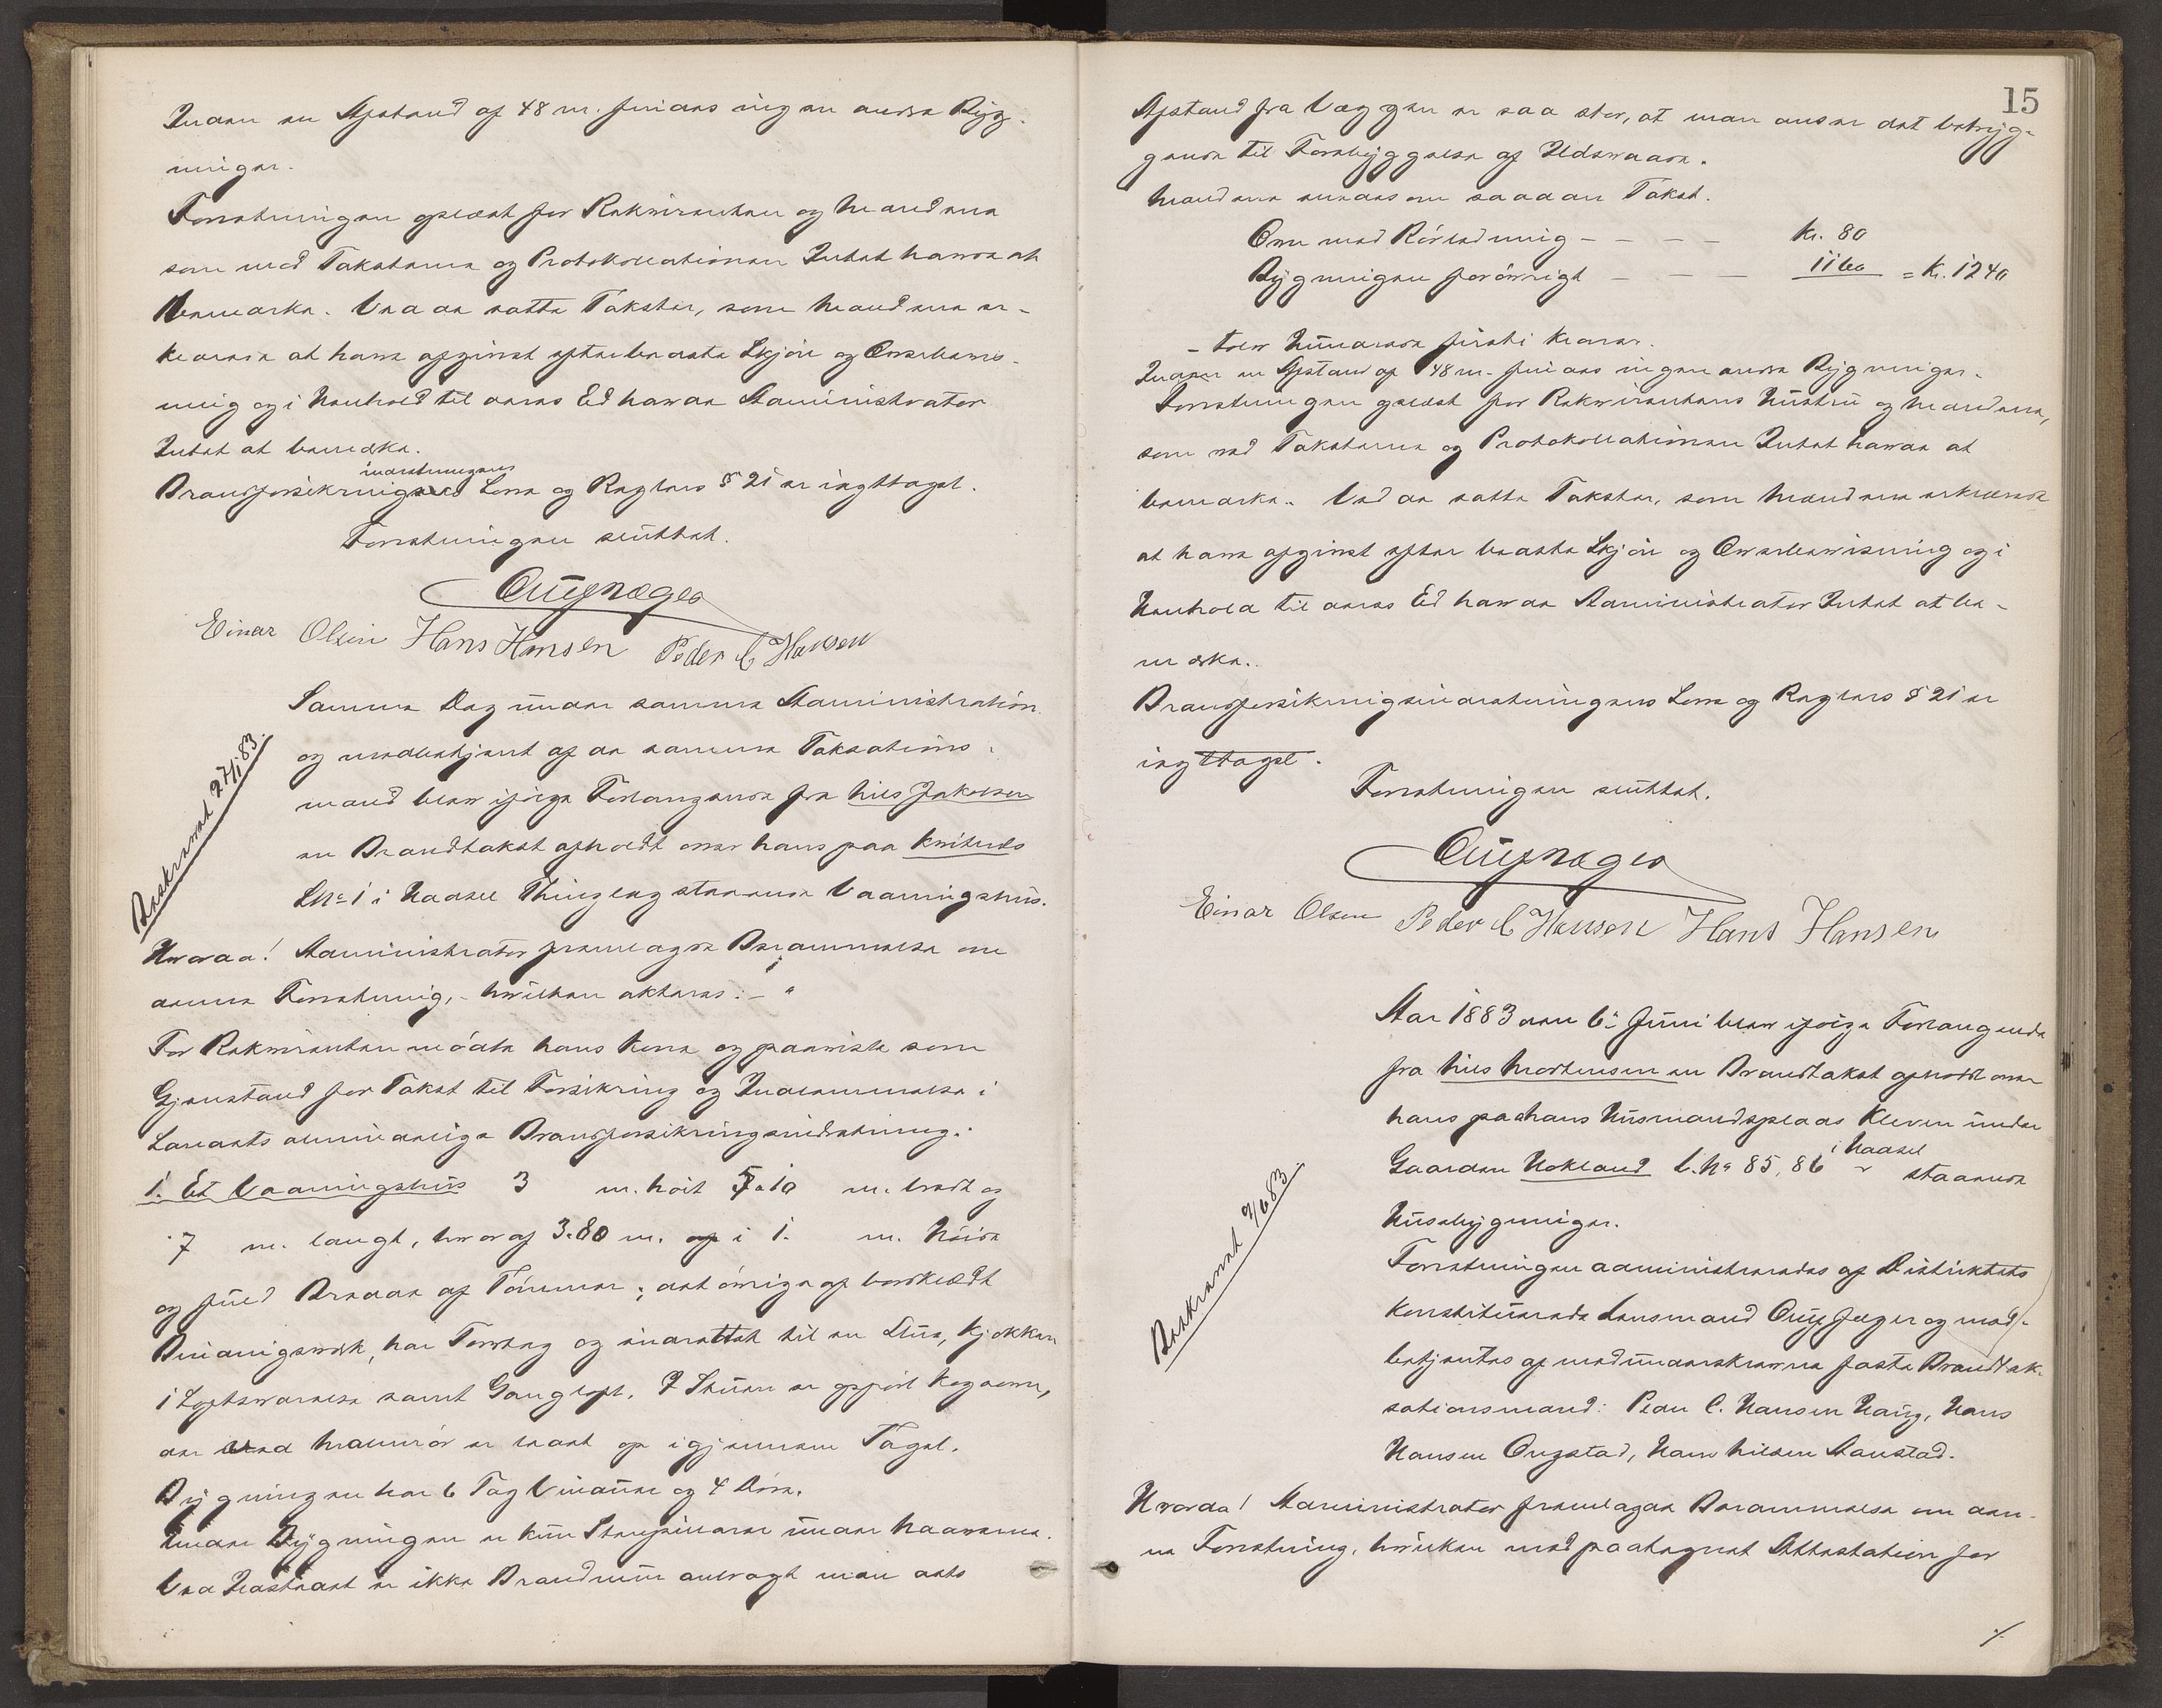 Inden en Afstand af 48 m. findes ingen andre Byg-
ninger.
Forretningen oplæst for Rekvirenten og Mændene
som med Taksterne og Protokollationen Intet havde at
bemærke. Ved de satte Takster, som Mændene er-
klærede at have afgivet efter bedste Skjön og Overbevis-
ning og i Henhold til deres Ed havde Administrator
Intet at bemærke.
indretningens
Brandforsikrings Love og Reglers § 21 er iagttaget.
Forretningen sluttet.
Einar Olsen Hans Hansen Peder C Hansen
Samme Dag under samme Administration
og medbetjent af de samme Taksations-
mænd blev ifölge Forlangende fra Nils Jakobsen
en Brandtakst afholdt over hans paa
LNo 1 i Hadsel Thinglag staaende Vaaningshus.
Beskrevet 27/1 83.
Hvorda! Administrator fremlagde Berammelse om
denne Forretning, - hvilken akteres: - "
For Rekvirenten mödte hans Kone og paaviste som
Gjenstand for Takst til Forsikring og Indlemmelse i
Landets almindelige Brandforsikringsindretning:
1. Et Vaaningshus 3 m. höit 5.10 m. bredt og
7 m. langt, hvoraf 3.80 m. op i 1. m. Höide
og fuld Bredde af Tömmer; det övrige af bordklædt
Bindingsverk, har Torvtag og indrettet til en Stue, Kjökken
i Loftsværelse samt Gangloft. I Stuen er opfört Kogeovn,
der ved Mellemrör er ledet op igjennem Taget.
Bygningen har 6 Fag Vinduer og 4 Döre.
Under Bygningen er kun Steenpillarer under Naaverne.
Ved Ildstedet er ikke Brandmur anbragt men dets
15
Afstand fra Væggen er saa stor, at man anser det betryg-
gende til Forebyggelse af Ildsvaade.
Mændene enedes om saadan Takst.
Ovn med Rörledning - - - - Kr. 80
Bygningen forövrigt - - - 1160 = Kr. 1240
- tolv Hundrede firti Kroner.
Inden en Afstand af 48 m. findes ingen andre Bygninger.
Forretningen oplæst for Rekvirentens Hustru og Mændene,
som ved Taksterne og Protokollationen Intet havde at
bemærke. Ved de satte Takster, som Mændene erklærede
at have afgivet efter bedste Skjön og Overbevisning og i
Henhold til deres Ed havde Administrator Intet at be-
mærke.
Brandforsikringsindretningens Love og Reglers § 21 er
iagttaget.
Forretningen sluttet.
Einar Olsen Peder C Hansen Hans Hansen
Aar 1883 den 6te Juni blev ifölge Forlangende
fra Nils Mortensen en Brandtakst afholdt over
hans paa hans Husmandsplads Kleven under
Gaarden Hokland L.No 85, 86 i Hadsel staaende
Husebygninger.
Beskrevet 9/6 83.
Forretningen administreredes af Distriktets
konstituerede Lensmand Ouf Jæger og med-
betjentes af medunderskrevne faste Brandtak-
sationsmænd: Peder C. Hansen Haug, Hans
Hansen Ongstad, Hans Nilsen Anstad.
Hvorda! Administrator fremlagde Berammelse om den-
ne Forretning, hvilken med paategnet Attestation for